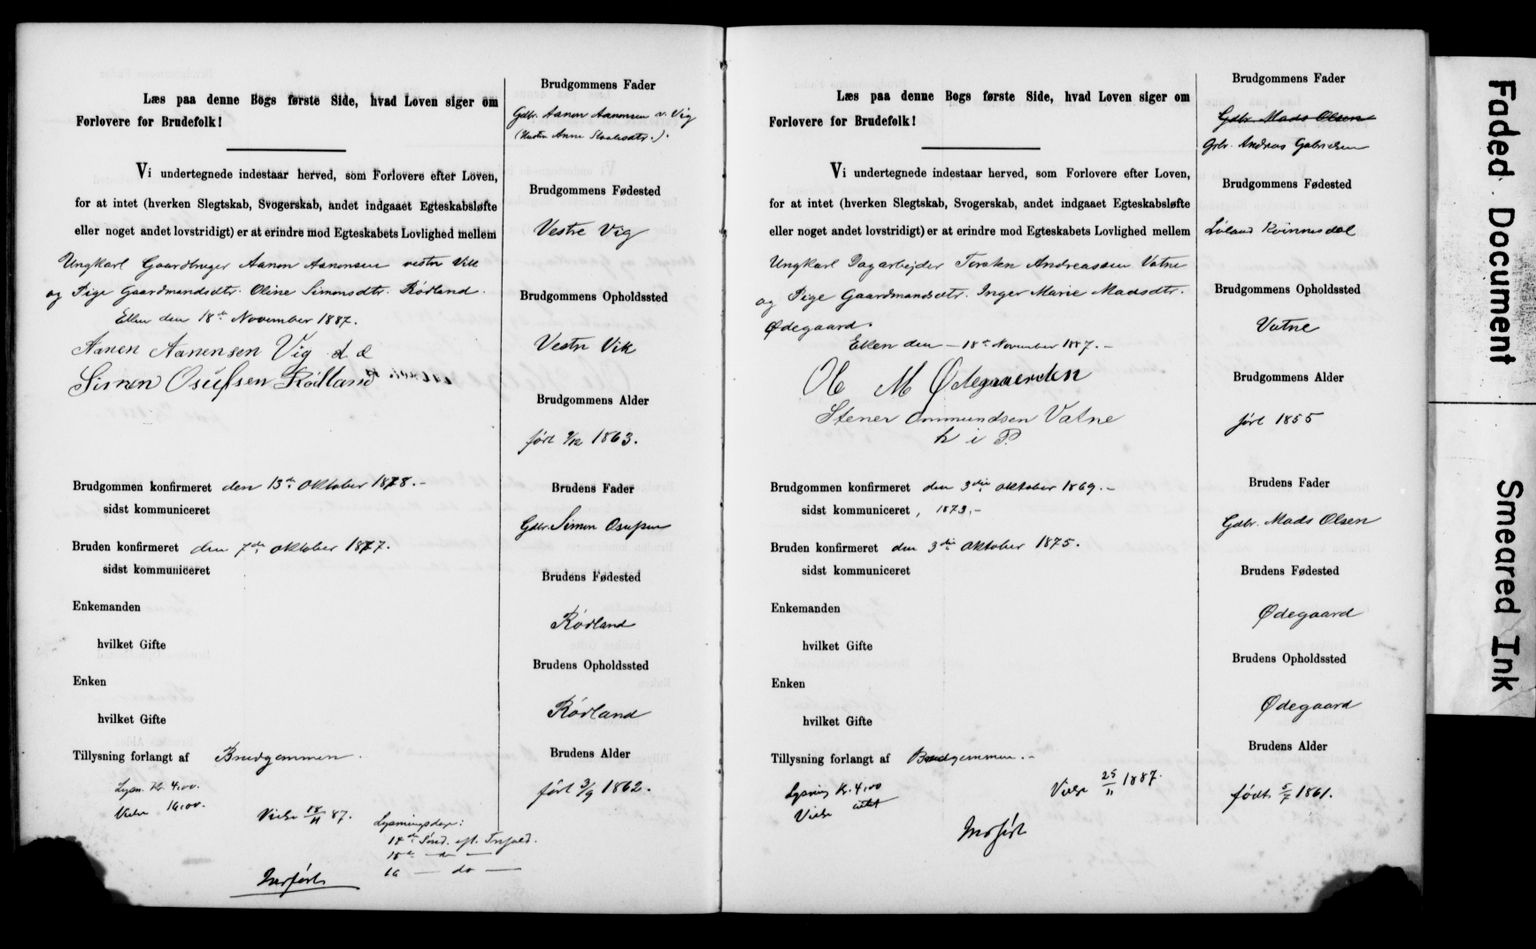 Læs paa denne Bogs første Side, hvad Loven siger om
Forlovere for Brudefolk!
Vi undertegnede indestaar herved, som Forlovere efter Loven,
for at intet (hverken Slegtskab, Svogerskab, andet indgaaet Egteskabsløfte
eller noget andet lovstridigt) er at erindre mod Egteskabets Lovlighed mellem
Ungkarl Gaardbruger Aanon Aanonsen vestre Vik
og Pige Gaardmandsdtr. Oline Simonsdtr. Rödland.
Eken den 18de November 1887.
Aanen Aanensen Vig d. æ
Simen Osufsen Rödland
Brudgommen konfirmeret den 13de Oktober 1878.-
sidst kommuniceret
Bruden konfirmeret den 7de Oktober 1877.
sidst kommuniceret
Enkemanden
hvilket Gifte
Enken
hvilket Gifte
Tillysning forlangt af Brudgommen.
Lysn. Kr. 4.00.
Vielse 16.00.
Vielse 18/11 87.
Lysningsdage:
14de Sönd. eft. Trefold.
15de - do -
16 - do -
Indført
Brudgommens Fader
Gdbr. Aanon Aanonsen v. Vig
(Hustru Anne
Brudgommens Fødested
Vestre Vig
Brudgommens Opholdssted
Vestre Vik
Brudgommens Alder
født 9/12 1863.
Brudens Fader
Gdbr. Simon Osufsen
Brudens Fødested
Rödland
Brudens Opholdssted
Rödland
Brudens Alder
født 3/9 1862.
Læs paa denne Bogs første Side, hvad Loven siger om
Forlovere for Brudefolk!
Vi undertegnede indestaar herved, som Forlovere efter Loven,
for at intet (hverken Slegtskab, Svogerskab, andet indgaaet Egteskabsløfte
eller noget andet lovstridigt) er at erindre mod Egteskabets Lovlighed mellem
Ungkarl Dagarbejder Torkel Andreassen Vatne
og Pige Gaardmandsdtr. Inger Marie Madsdtr.
Ødegaard.
Eken den - 18de November 1887.-
Ole M Ødegaarden
Stener Ommundsen Vatne
h i P.
Brudgommen konfirmeret den 3die Oktober 1869.-
sidst kommuniceret, 1873.-
Bruden konfirmeret den 3die Oktober 1875.
sidst kommuniceret
Enkemanden
hvilket Gifte
Enken
hvilket Gifte
Tillysning forlangt af Brudgommen.-
Lysning Kr. 4.00
Vielse intet
Vielse 25/11 1887.
Indført
Brudgommens Fader
Gdbr. Mads Olsen
Gbr. Andreas Gabrielsen
Brudgommens Fødested
Løland Kvinnesdal
Brudgommens Opholdssted
Vatne
Brudgommens Alder
født 1855
Brudens Fader
Gdbr. Mads Olsen
Brudens Fødested
Ødegaard
Brudens Opholdssted
Ødegaard
Brudens Alder
født 5/7 1861.
Faded Document
Smeared Ink